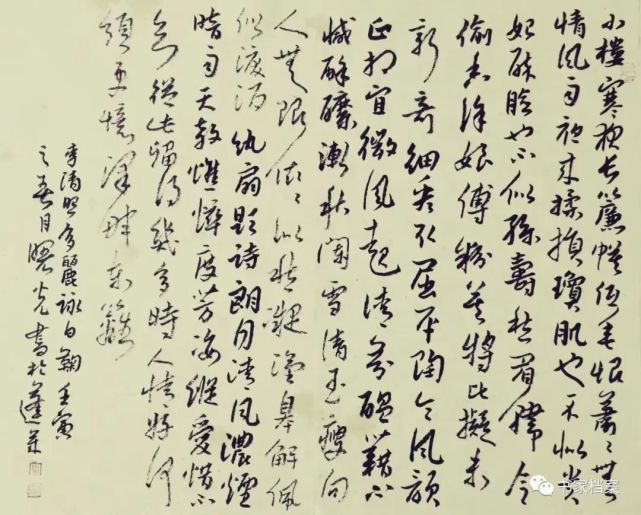 小樓寒夜长簾帷低垂恨蕭〻無
情風雨夜来揉損瓊肌也不似贵
妃酥脸也不似孫壽愁眉韓令
偷香徐娘傅粉莫將比擬未
新奇細看取屈平陶令風韻
正相宜微風起清芬醖藉不
减酴醾漸秋闌雪清玉瘦向
人無限依〻似愁凝漢皋解佩
似淚洒紈扇题詩朗月清風濃煙
暗雨天教憔悴度芳姿縱愛惜不
知從此留得幾多時人情好何
須更憶澤畔東籬
李清照多麗詠白菊壬寅
之春月曙光書於蓬萊
书家档案